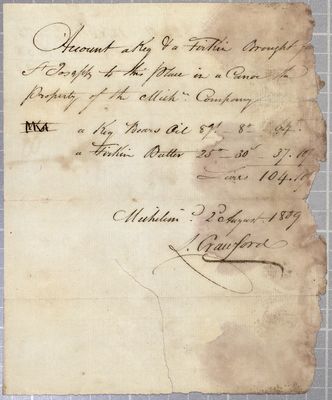 Account a Keg & a Firkin Brought
St Joseph to this Place in a Canoe the
Property of the Mich.n Company
a Keg Bears Oil 8 gs - 8
a Firkin Butter 25 - 30s - 37.10
Livres 104.10
Michilim.c 2d August 1809
L. Crawford